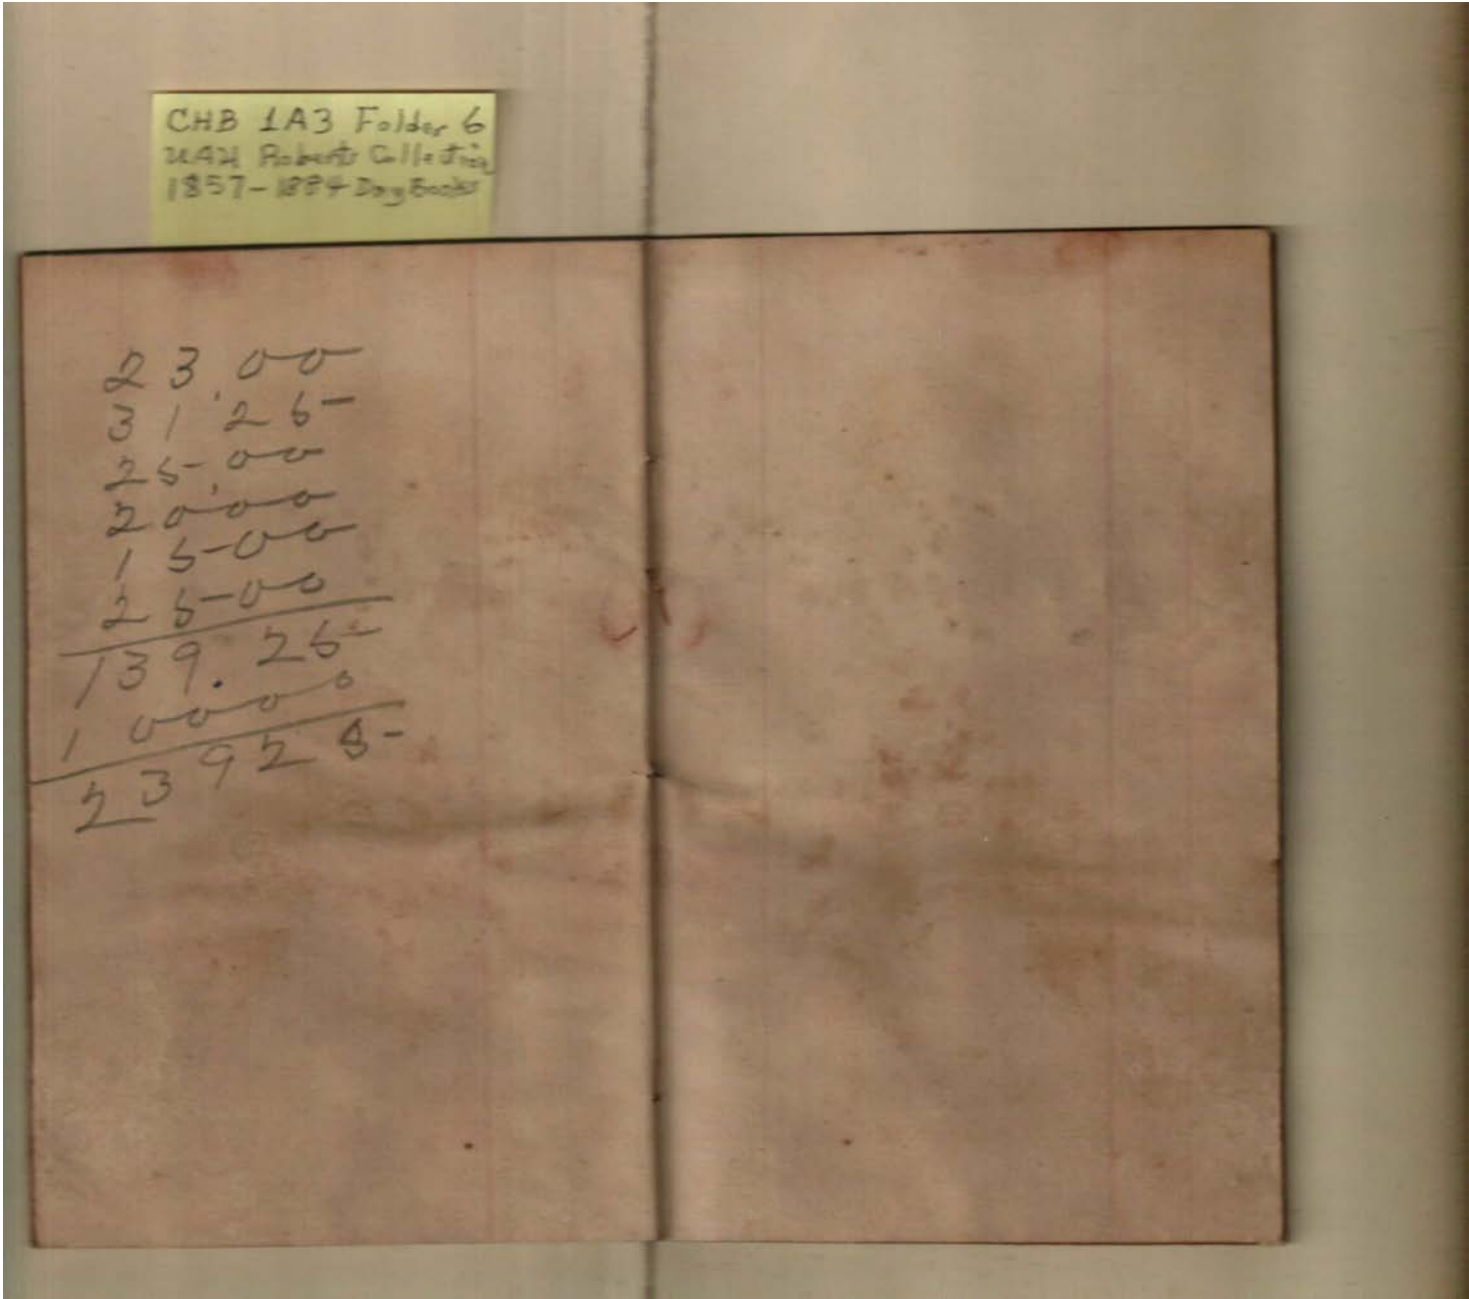 CHB 1A3 Folder 6
UAH Roberts Collection
1857-1884 Day Books
23.00
31.25
25.00
20.00
15 00
25 00
139.25
1 00 00
2 3 9 2 5